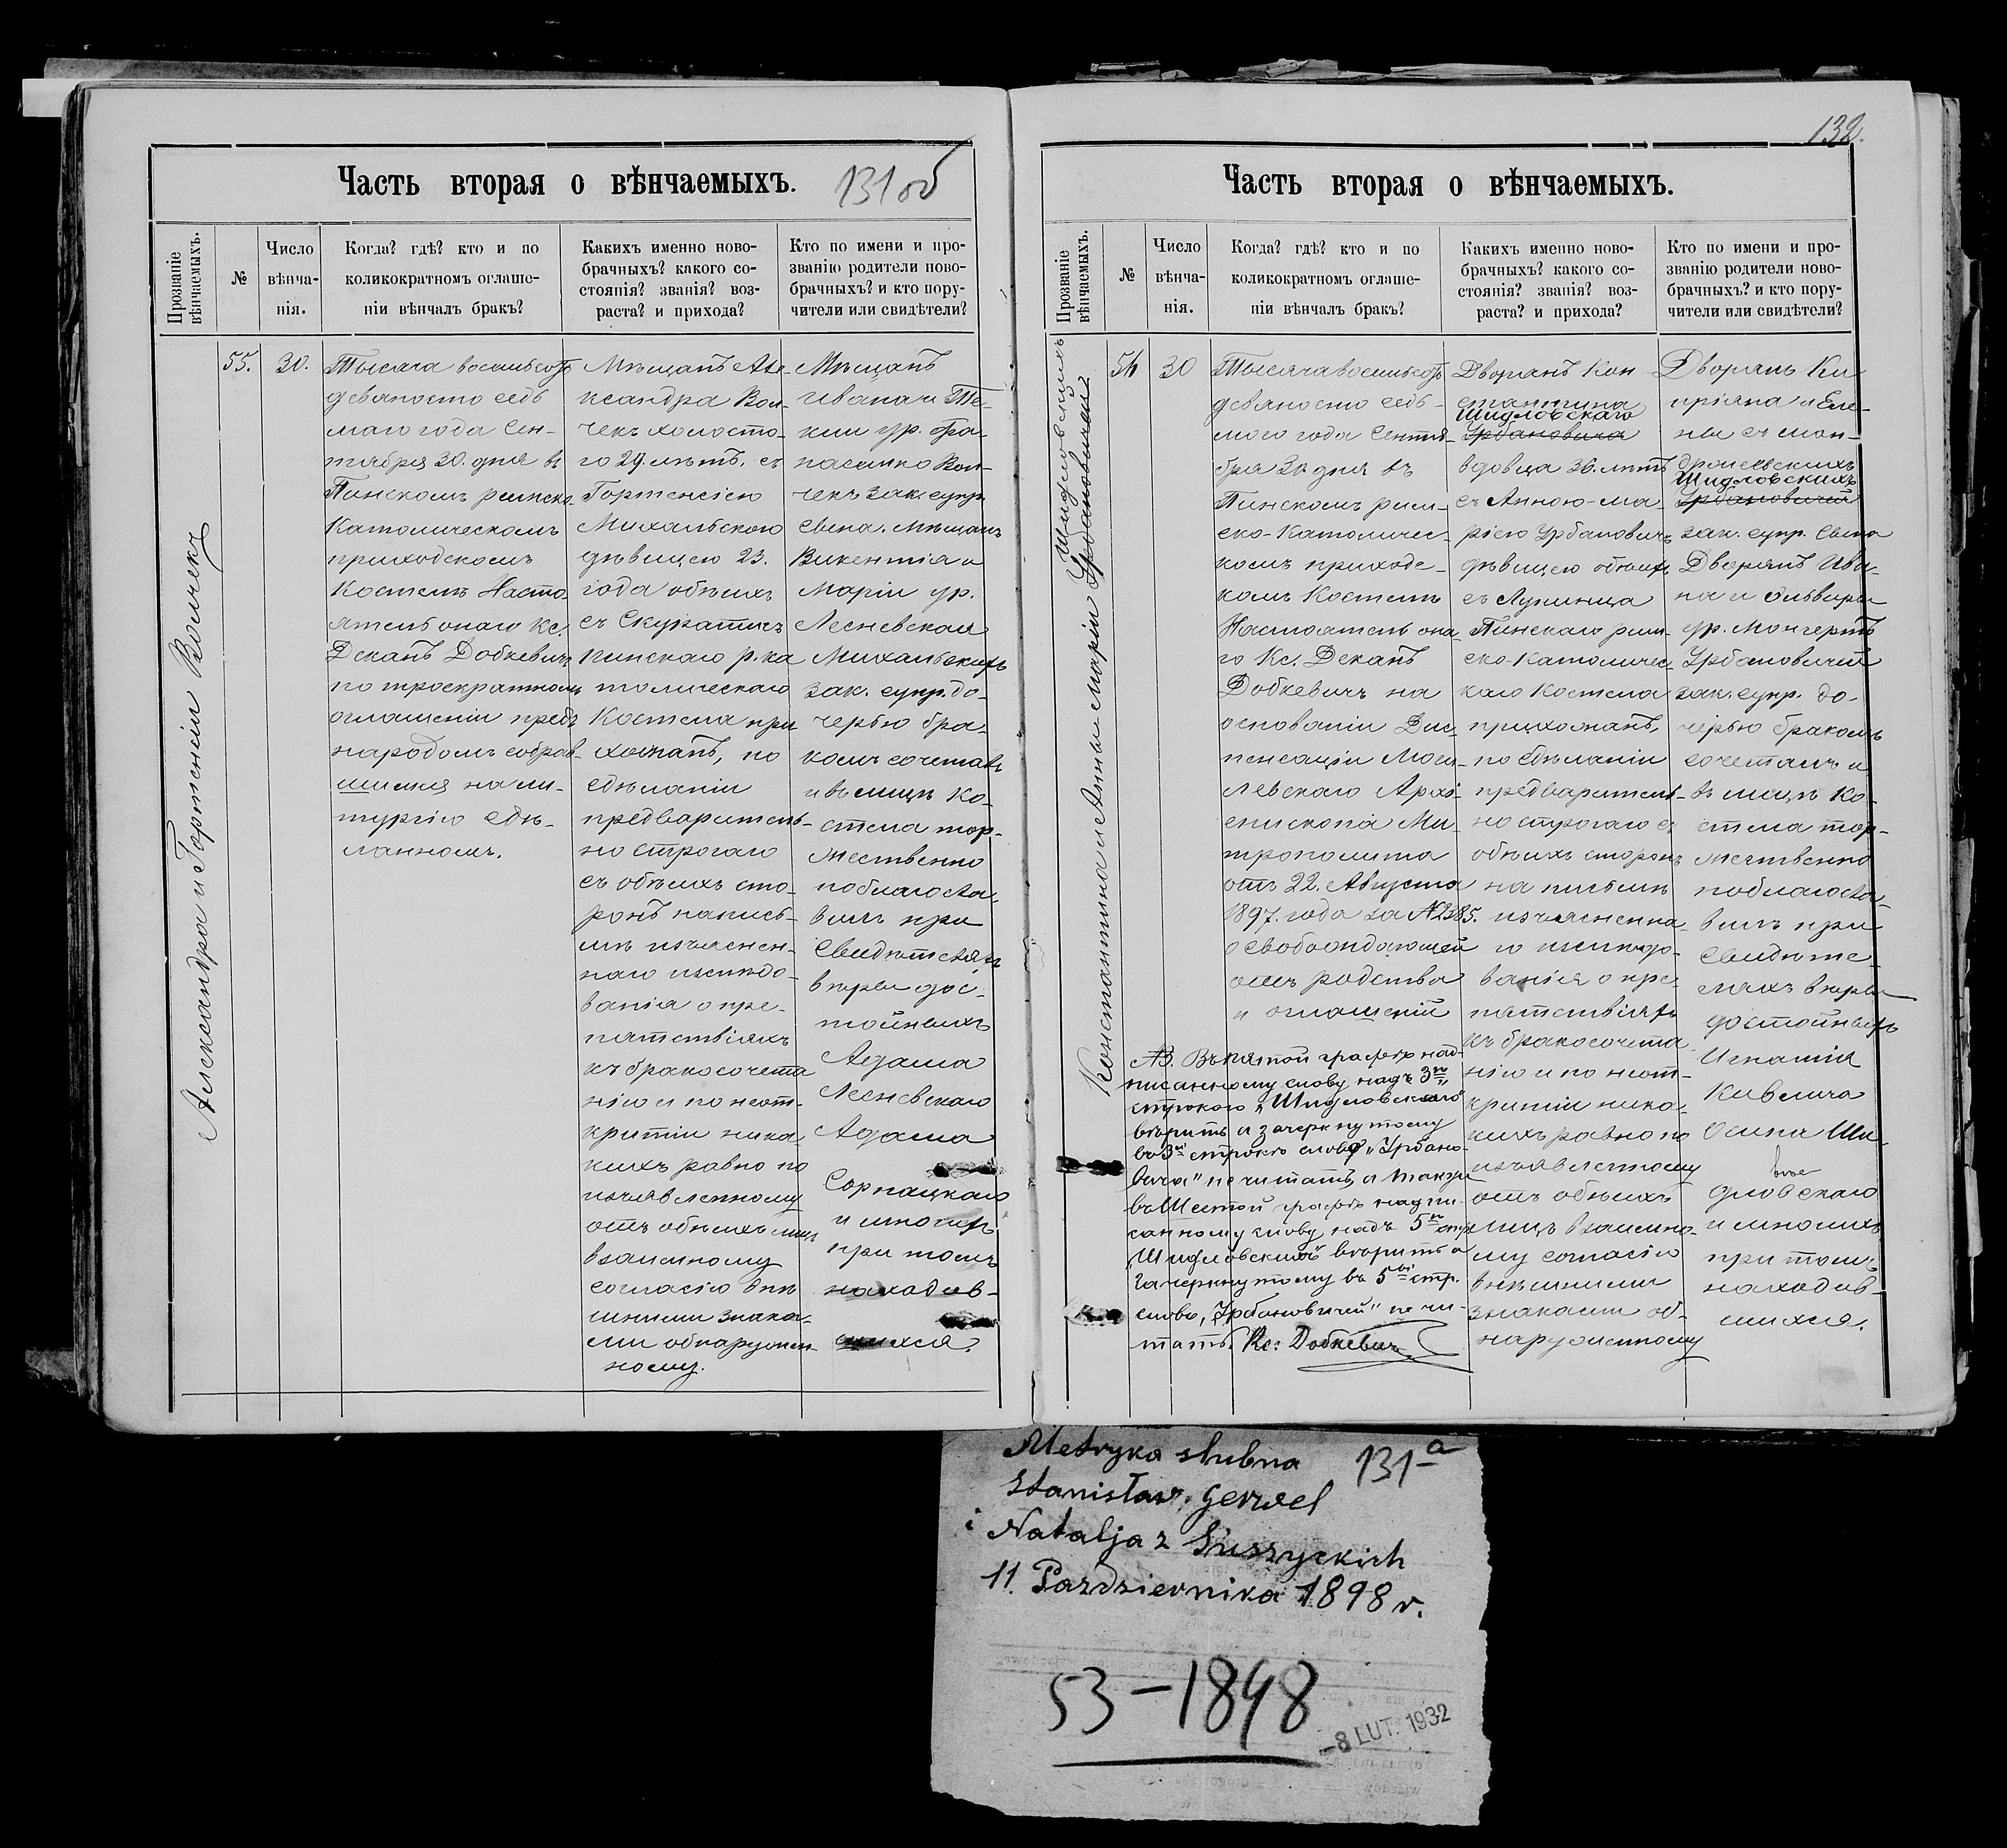 Часть вторая о вѣнчаемыхъ.
131 об
Прозваніе вѣнчаемыхъ.
№
Число вѣнча-
нія.
Когда? гдѣ? кто и по
коликократномъ оглаше-
ніи вѣнчалъ бракъ?
Какихъ именно ново-
брачныхъ? какого со-
стоянія? званія? воз-
раста? и прихода?
Кто по имени и про-
званію родители ново-
брачныхъ? и кто пору-
чители или свидѣтели?
Александра и Гортензіи Волчекъ
55.
30.
Тысяча восемьсотъ
девяносто седь
маго года Сен-
тября 30. дня въ
Пинскомъ римско
Католическомъ
приходскомъ
Костелѣ Насто-
ятель онаго Кс.
Деканъ Добкевичъ
по троекратномъ
оглашеніи предъ
народомъ собрав-
шимся на ли-
тургію сдѣ-
ланномъ.
Мѣщанъ Але-
ксандра Вол-
чекъ холосто-
го 29. лѣтъ, съ
Гортенсіею
Михальскою
дѣвицею 23.
года обѣихъ
съ Скуратичъ
Пинскаго р. ка
толическаго
Костела при
хожанъ, по
сдѣланіи
предваритель-
но строгаго
съ обѣихъ сто-
ронъ на пись-
мѣ изъяснен-
наго изслѣдо-
ванія о пре-
пятствіяхъ
къ бракосочета
нію и по неот-
крытіи ника
кихъ равно по
изъявленному
отъ обѣихъ лицъ
взаимному
согласію внѣ
шними знака-
ми обнаружен-
ному.
Мѣщанъ
Ивана и Те-
кли ур. Фа-
насенко Вол-
чекъ зак. супр.
сына. Мѣщанъ
Викентія и
Маріи ур.
Лесневской
Михальскихъ
зак. супр. до-
черью бра-
комъ сочеталъ
и въ лицѣ Ко-
стела тор-
жественно
поблагосло-
вилъ при
Свидѣтеляхъ
вѣры дос-
тойныхъ
Адама
Лесневскаго
Адама
Сорпацкаго
и многихъ
при томъ
находив-
шихся.
132.
Часть вторая о вѣнчаемыхъ.
Прозваніе вѣнчаемыхъ.
№
Число вѣнча-
нія.
Когда? гдѣ? кто и по
коликократномъ оглаше-
ніи вѣнчалъ бракъ?
Какихъ именно ново-
брачныхъ? какого со-
стоянія? званія? воз-
раста? и прихода?
Кто по имени и про-
званію родители ново-
брачныхъ? и кто пору-
чители или свидѣтели?
Шидловскихъ
Константина и Анны-Маріи Урбановичей
56
30
Тысяча восемьсотъ
девяносто седь-
мого года Сентя-
бря 30 дня въ
Пинскомъ рим-
ско-Католичес-
комъ приход-
комъ Костелѣ
Настоятель она-
го Кс. Деканъ
Добкевичъ на
основаніи Дис-
пенсаціи Моги-
левскаго Архі-
епископа Ми-
трополита
отъ 22. Августа
1897. года за №2385.
освобождающей
отъ родства
и оглашеній
NB. Въ пятой графѣ над-
писанному слову надъ 3й
строкою „Шидловскаго"
вѣрить а зачеркнутому
въ 3й строкѣ слову „Урбано-
вича" не читать, а также
въ шестой графѣ надпи-
санному слову надъ 5й стр.
„Шидловскихъ" вѣрить а
зачеркнутому въ 5й стр.
слово, „Урбановичей" не чи-
тать. Кс: Добкевичъ
Дворянъ Кон
стантина
Шидловскаго
Урбановича
вдовца 36. лѣтъ
съ Анною-Ма-
ріею Урбановичъ
дѣвицею обѣихъ
съ Лунинца
Пинскаго рим-
ско-Католичес-
каго Костела
прихожанъ,
по сдѣланіи
предваритель-
но строгаго съ
обѣихъ сторонъ
на письмѣ
изъясненна-
го изслѣдо-
ванія о пре
пятствіяхъ
къ бракосочета
нію и по неот-
крытіи ника-
кихъ равно по
изъявленному
отъ обѣихъ
лицъ взаимно-
му согласію
внѣшними
знаками об-
наруженному
Дворянъ Ки
пріяна и Еле-
ны съ Мон-
Шидловскихъ
Урбановичей
зак. супр. сына
Дворянъ Ива-
на и Эльвиры
ур. Монгертъ
Урбановичей
зак. супр. до-
черью бракомъ
сочеталъ и
въ лицѣ Ко-
стела тор-
жественно
поблагосло-
вилъ при
Свидѣте-
ляхъ вѣры
достойныхъ
Игнатія
Кивелича
Осипа Ши-
дловскаго
и многихъ
при томъ
находив-
шихся.
Metryka slubna 131a
Stanisław. Gerwel
i Natalja z Suszyckich
11. Pazdziernika 1898 r.
53-1898
-8 LUT. 1932